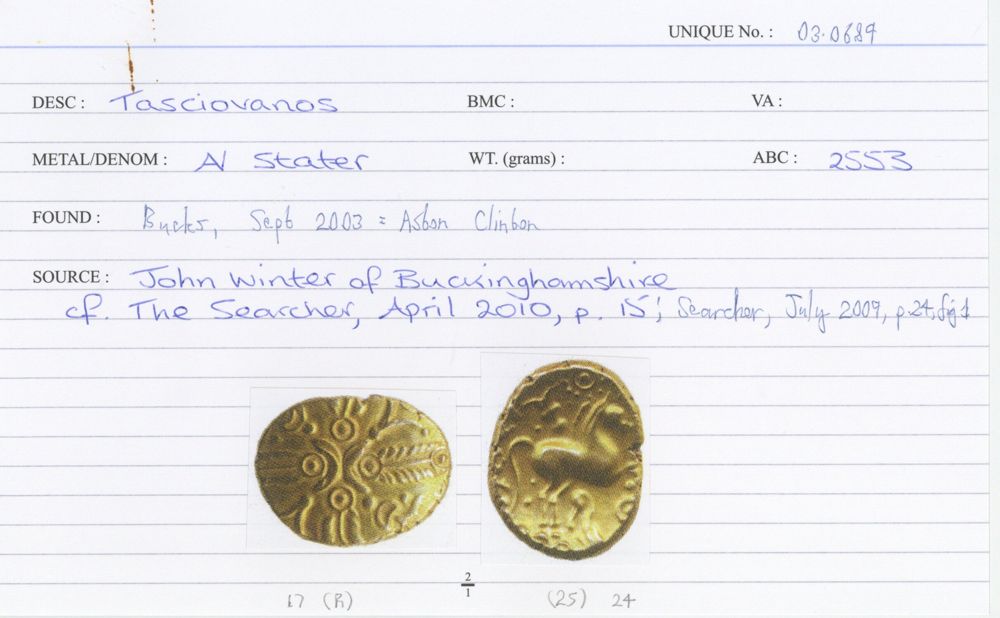 UNIQUE No. : 03.0689
DESC : Tasciovanos BMC : VA :
METAL/DENOM : AV Stater WT. (grams) : ABC : 2553
FOUND : Bucks, Sept 2003 = Aston Clinton
SOURCE : John Winter of Buckinghamshire
cf. The Searcher, April 2010, p. 15; Searcher, July 2009, p.24, fig 1
2
1
17 (R) (25) 24